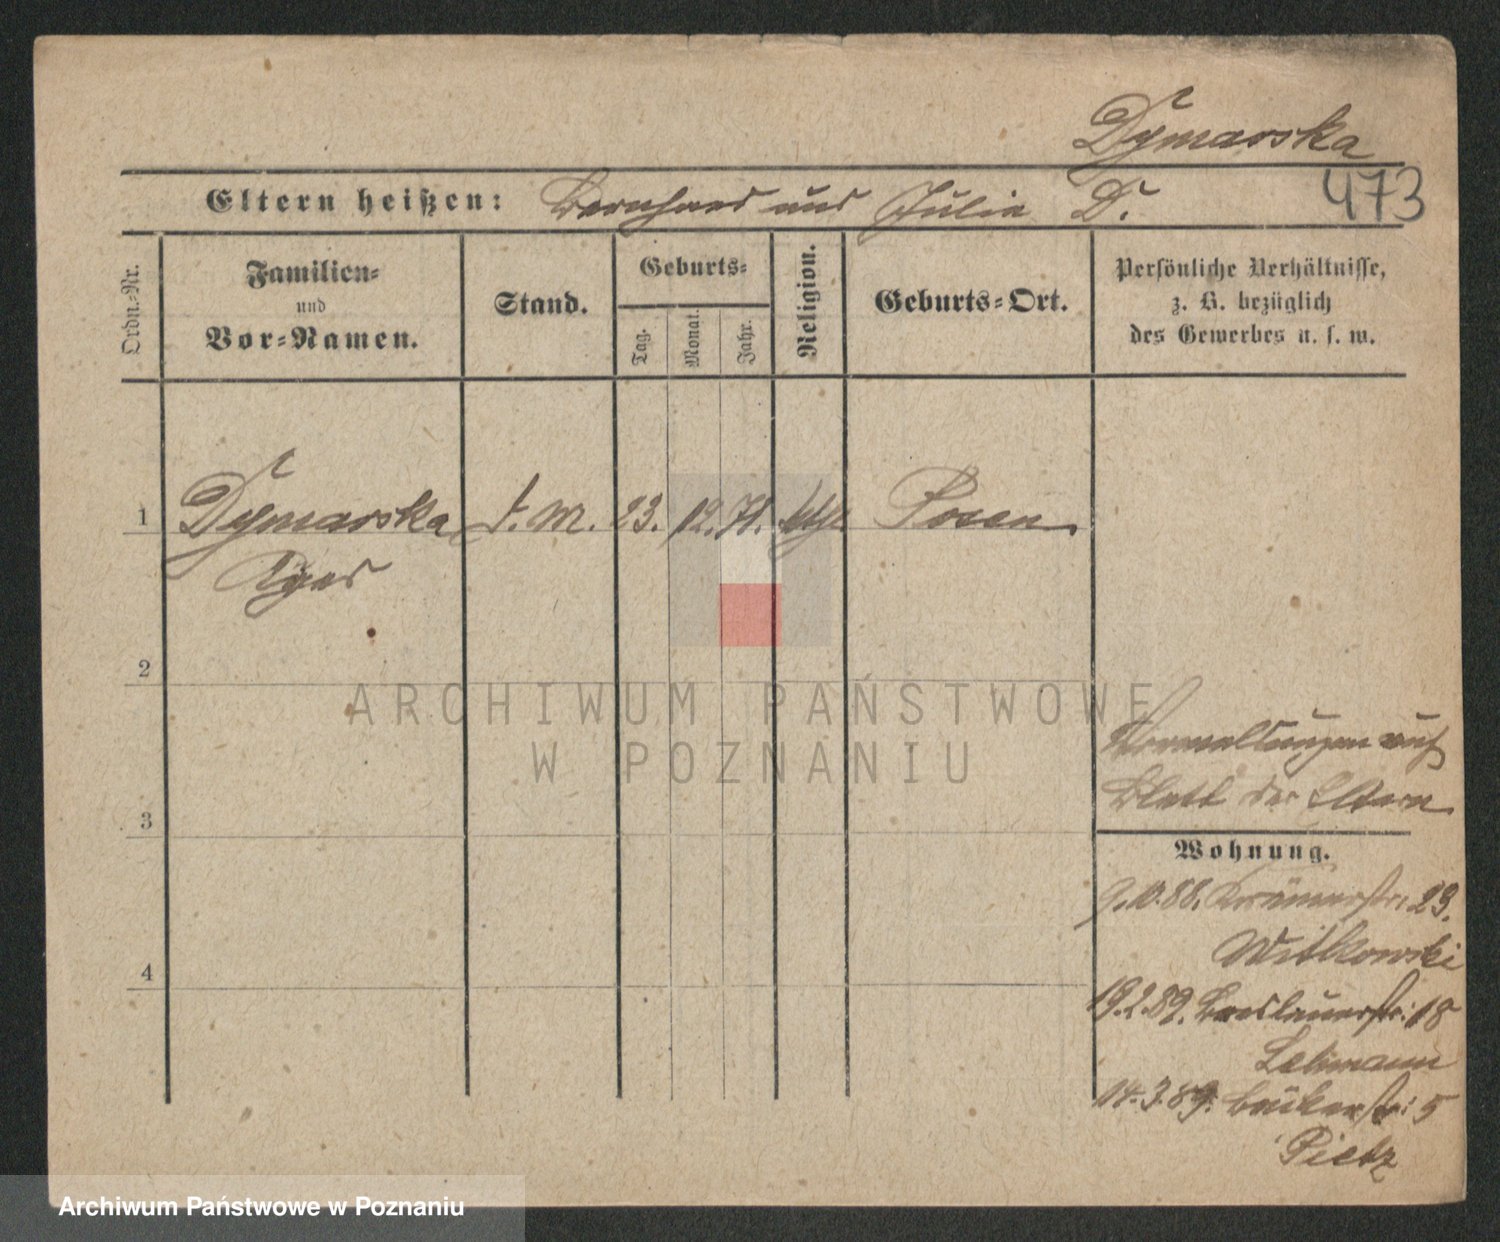 Dymarska
473
Eltern heißen: Bernhard und Julie D.
Ordn.-Nr.
Familien-
und
Vor-Namen.
Stand.
Geburts-
Tag.
Monat.
Jahr.
Religion.
Geburts-Ort.
Persönliche Verhältnisse,
z. B. bezüglich
des Gewerbes u. s. w.
1 Dymarska d. M. 23. 12. 71. kth Posen
Agnes
2
ARCHIWUM PAŃSTWOWE
W POZNANIU
auf
Blatt der Eltern
3
Wohnung.
9.10.88. Krämerstr: 23.
Witkowski
4
19.2.89. Breslauerstr: 18
Lehmann
14.3.89. Bäckerstr: 5
Pietz
Archiwum Państwowe w Poznaniu